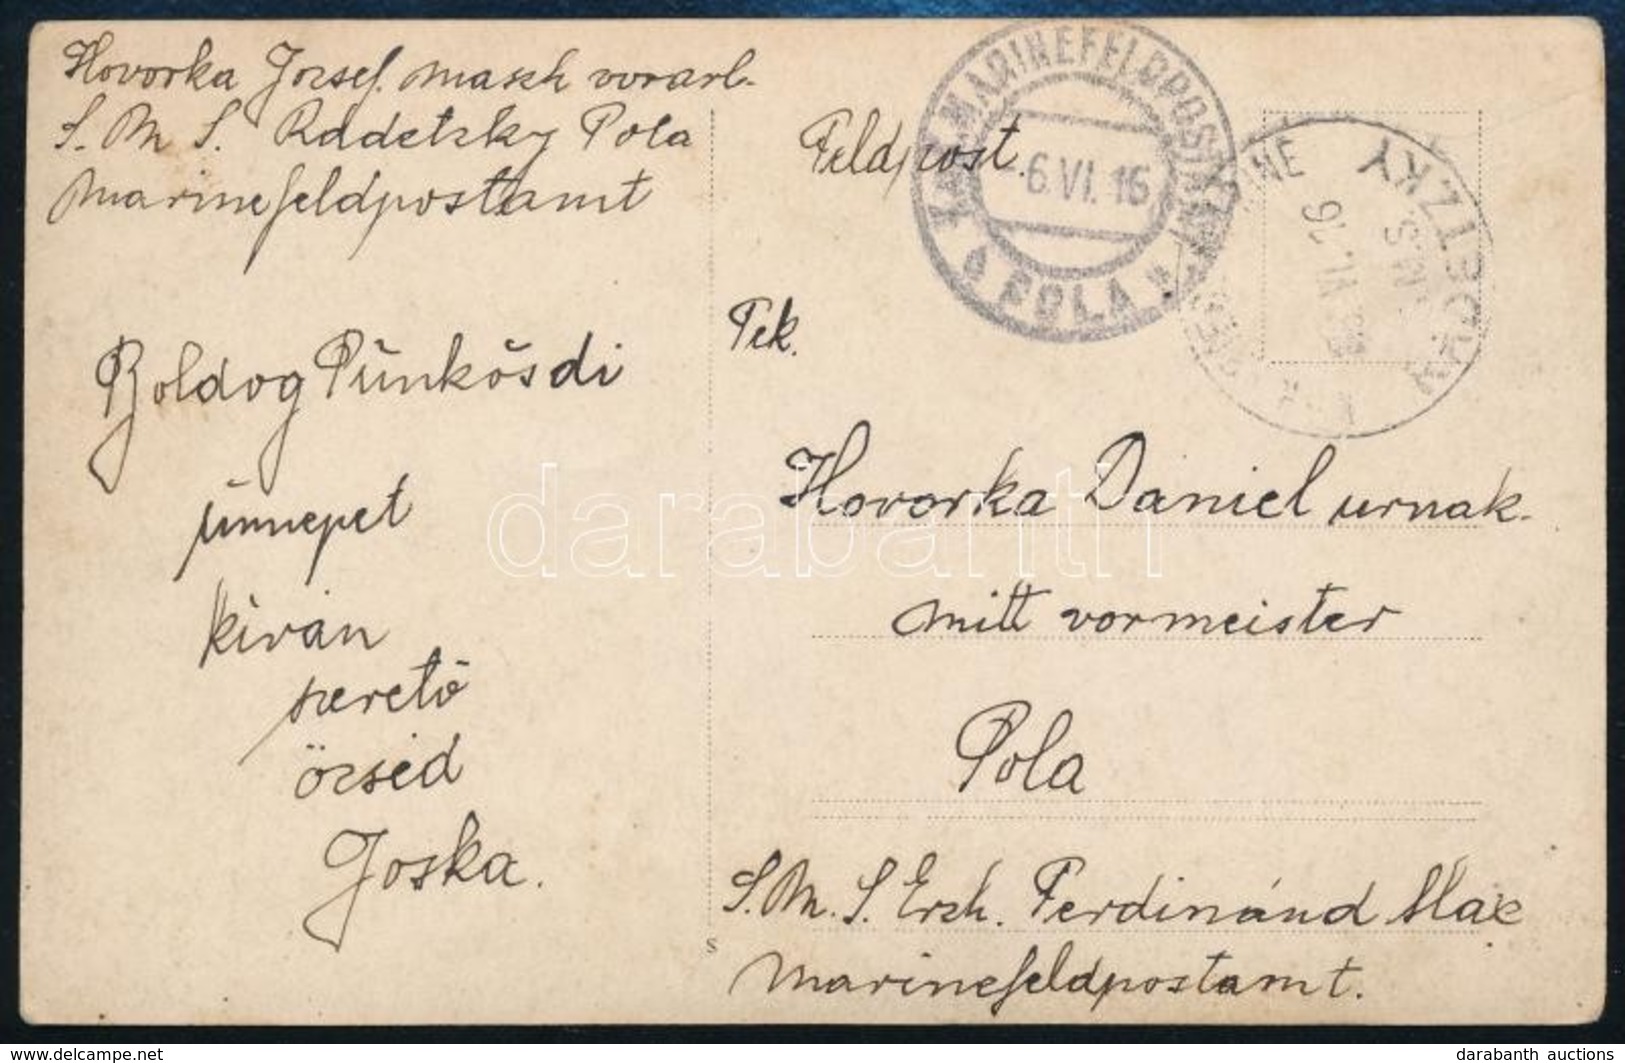 Hovorka József. Masch vorarl.
S. M. S. Radetzky Pola
Marinefeldpostamt
Boldog Pünkösdi
ünnepet
kiván
szerető
öcséd
Joska.
Feldpost.
K.u.K. MARINEFELDPOSTAMT
6.VI.16
POLA
RADETZKY
S.M.S.
VI. 16
Tek.
Hovorka Daniel urnak.
Mitt vormeister
Pola
S. M. S. Erzh. Ferdinánd Max
Marinefeldpostamt.
S
darabanth
www.delcampe.net
darabanth auctions